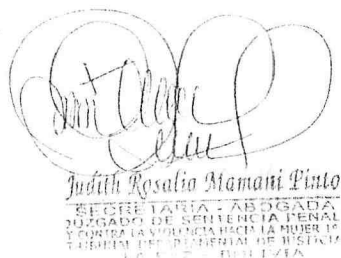 Judith Rosalia Mamani Pinto
SECRETARIA - ABOGADA
JUZGADO DE SENTENCIA PENAL
Y CONTRA LA VIOLENCIA HACIA LA MUJER 1º
TRIBUNAL DEPARTAMENTAL DE JUSTICIA
LA PAZ - BOLIVIA